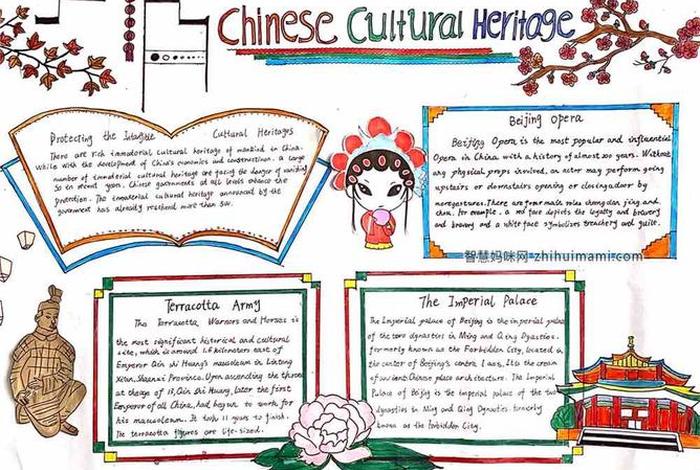 Chinese Cultural Heritage
Protecting the Intangible Cultural Heritages
There are rich immaterial cultural heritage of mankind in China.
While with the development of China's economics and construction. a large
number of immaterial cultural heritage are facing the danger of vanishing
So in recent years, Chinese governments at all levels enhance the
protection. The immaterial cultural heritage announced by the
government has already reached more than 500.
Beijing opera
Beijing Opera is the most popular and influential
Opera in China with a history of almost 200 years. Without
any physical props involved, an actor may perform going
upstairs or downstairs opening or closing a door by
mere gestures. There are four main roles sheng dan jing and
chou. For example, a red face depicts the loyalty and bravery
and bravery and a white face symbolizes treachery and guile.
智慧妈咪网-zhihuimami.com
Terracotta Army
The Terracotta Warriors and Horses is
the most significant historical and cultural
site, which is around 1.6 kilometers east of
Emperor Qin shi Huang's mausoleum in Lintong
Xi'an Shaanxi Province. Upon ascending the throne
at the age of 13, Qin Shi Huang, later the first
Emperor of all China, had begun to work for
his mausoleum. It took 11 years to finish.
The terracotta figures are life-sized.
The Imperial Palace
The Imperial palace of Beijing is the imperial palace
of the two dynasties in Ming and Qing Dynasties.
formerly known as the Forbidden City, located in
the center of Beijing's centre 1 axis. Its the cream
of ancient Chinese place architecture. The Imperial
Palace of Beijing is the imperial palace of the two
dynasties in Ming and Qing Dynasties formerly
known as the Forbidden City.